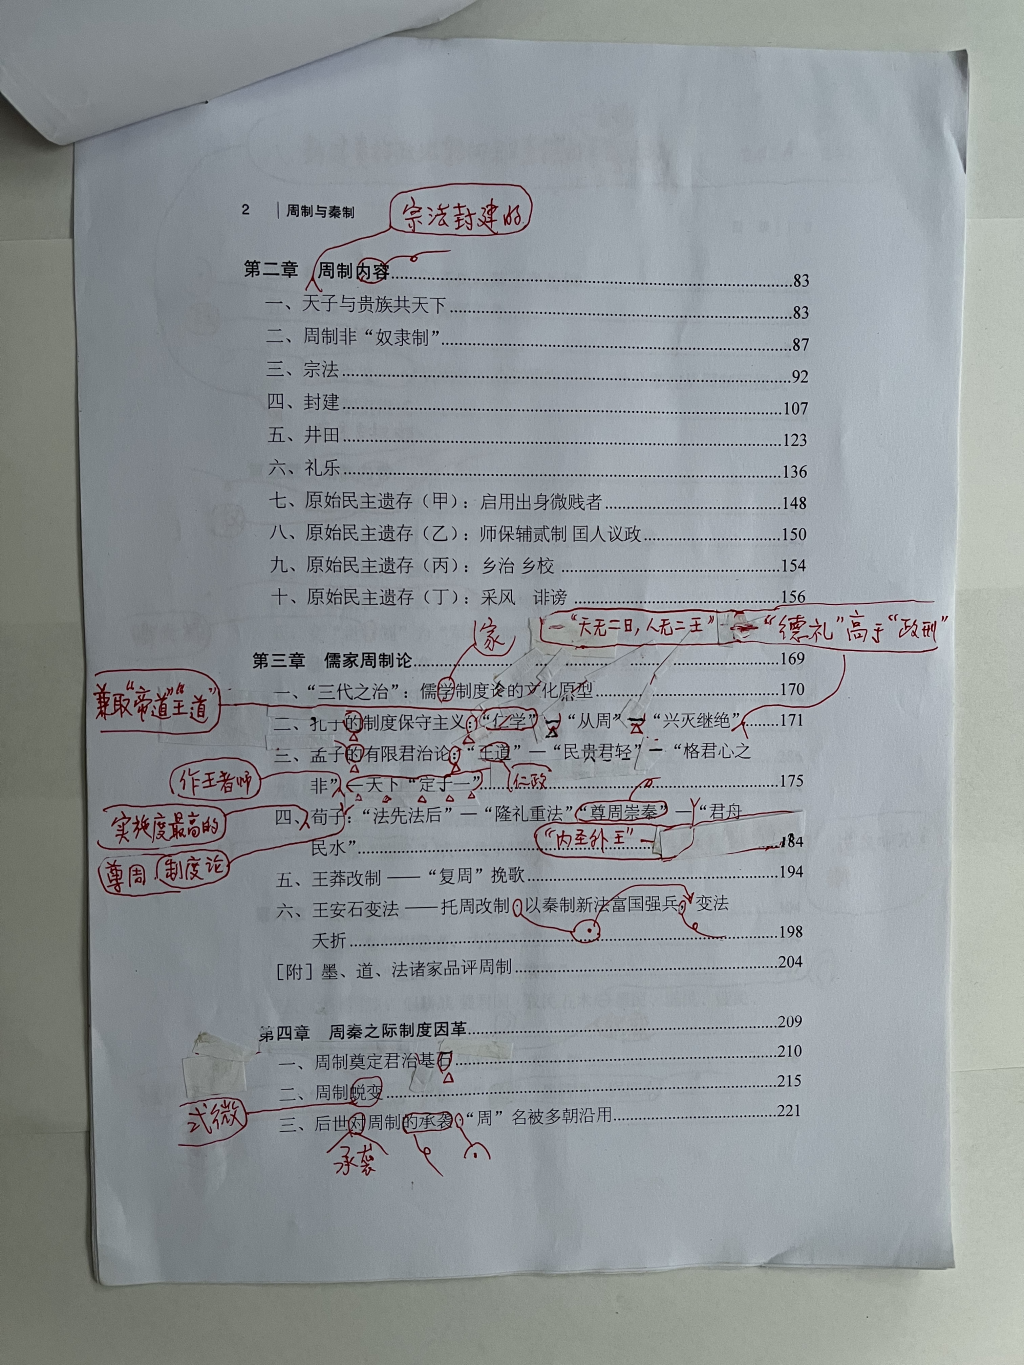 2 周制与秦制
宗法封建的
第二章 周制内容 83
一、天子与贵族共天下 83
二、周制非“奴隶制” 87
三、宗法 92
四、封建 107
五、井田 123
六、礼乐 136
七、原始民主遗存（甲）：启用出身微贱者 148
八、原始民主遗存（乙）：师保辅贰制 国人议政 150
九、原始民主遗存（丙）：乡治 乡校 154
十、原始民主遗存（丁）：采风 诽谤 156
家
—“天无二日，人无二王”
—“德礼”高于“政刑”
第三章 儒家周制论 169
一、“三代之治”：儒学制度论的文化原型 170
兼取“帝道”“王道”
二、孔子的制度保守主义：“仁学”—“从周”—“兴灭继绝” 171
三、孟子的有限君治论：“王道”—“民贵君轻”—“格君心之
非”—天下“定于一” 175
仁政
作王者师
四、荀子：“法先法后”—“隆礼重法”“尊周崇秦”—“君舟
实施度最高的
民水” 184
“内圣外王”—
尊周制度论
五、王莽改制 ——“复周”挽歌 194
六、王安石变法 ——托周改制 以秦制新法富国强兵 变法
夭折 198
［附］墨、道、法诸家品评周制 204
第四章 周秦之际制度因革 209
一、周制奠定君治基石 210
二、周制蜕变 215
式微
三、后世对周制的承袭：“周”名被多朝沿用 221
承袭